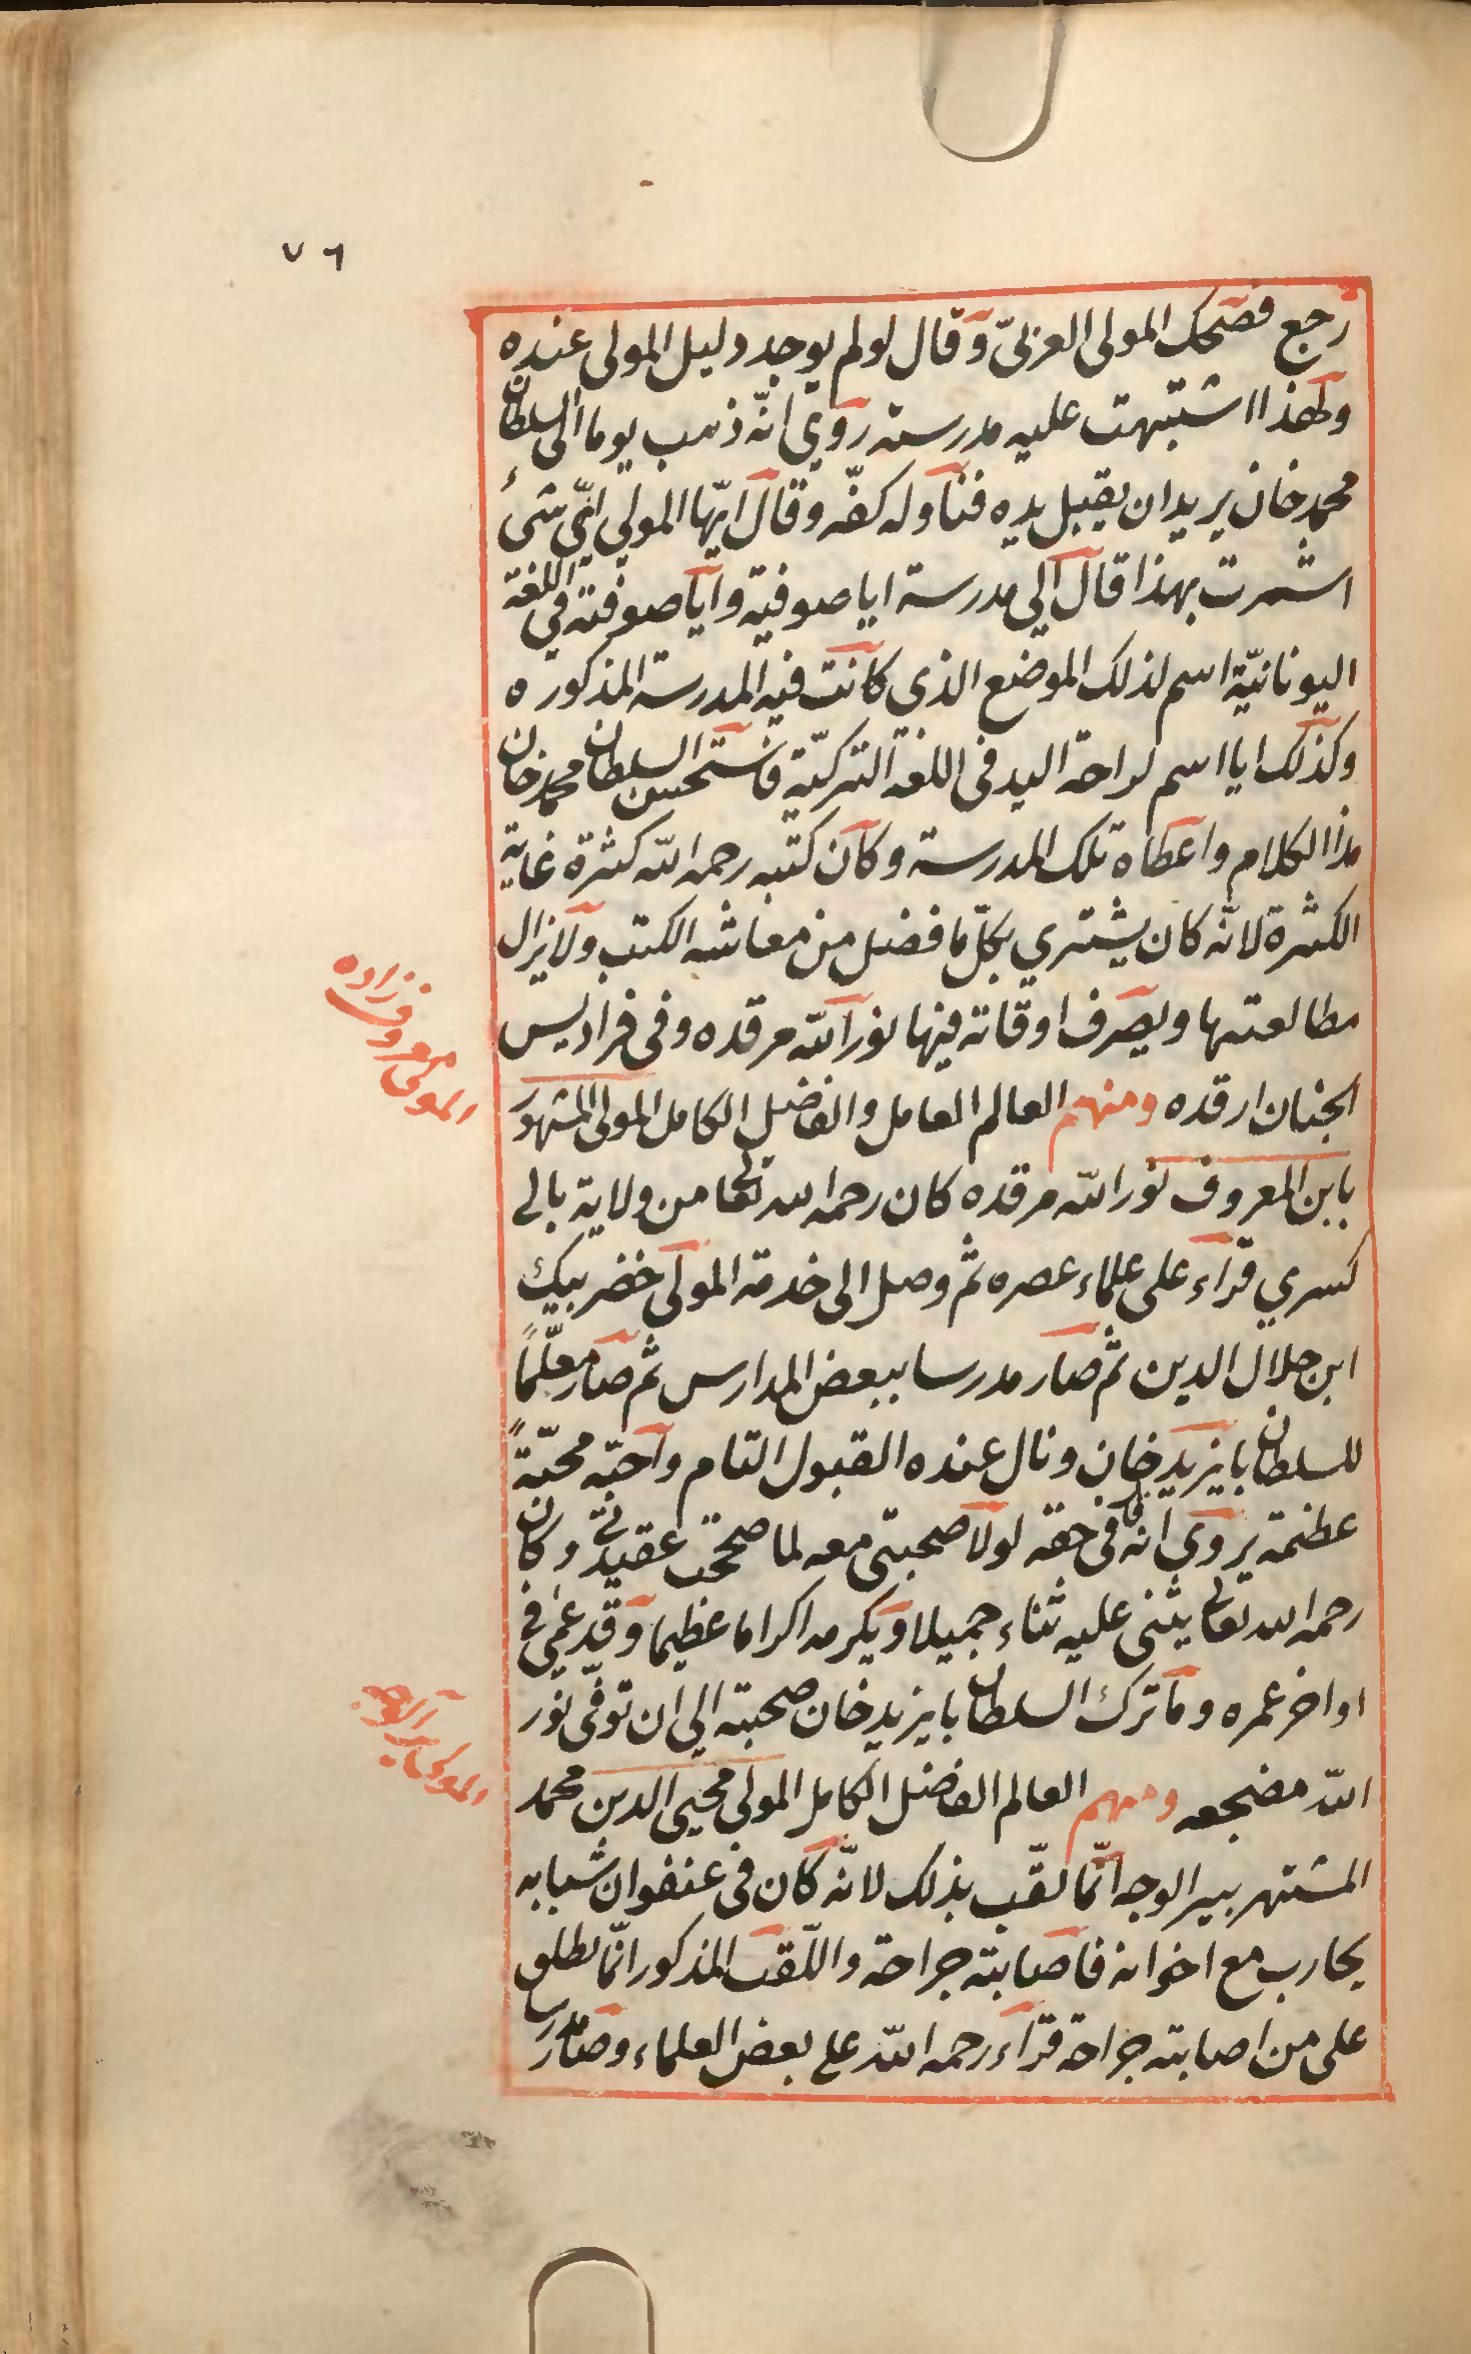 ٧٦
رجع فضحك المولى العزلىّ وقال لو لم يوجد دليل المولى عنده
ولهذا اشتبهت عليه مدرسته روي انّه ذهب يوما الى السلطان
محمد خان يريد ان يقبل يده فناوله كفّه وقال ايّها المولي ايّ شىء
اشرت بهذا قال الي مدرسة ايا صوفية وايا صوفية في اللغة
اليونانيّة اسم لذلك الموضع الذي كانت فيه المدرسة المذكوره
وكذلك ايا اسم لراحة اليد في اللغة التركيّة فاستحسن السلطان محمد خان
هذا الكلام واعطاه تلك المدرسة وكان كتبه رحمه الله كثرة غاية
الكثرة لانّه كان يشتري بكلّ ما فضل من معاشه الكتب ولا يزال
مطالعتها ويصرف اوقاته فيها نور الله مرقده وفى فراديس
الجنان ارقده ومنهم العالم العامل والفاضل الكامل المولى المشهور
المولى معروف زاده
بابن المعروف نور الله مرقده كان رحمه الله تعالى من ولاية بالى
كسري قرأء على علماء عصره ثم وصل الى خدمة المولى خضر بيك
ابن جلال الدين ثم صار مدرسا ببعض المدارس ثم صار معلّمًا
للسلطان بايزيد خان ونال عنده القبول التام واحبّه محبّةً
عظيمة يروى انه قال في حقه لولا صحبتى معه لما صحّحت عقيدتى وكان
رحمه الله تعالى يثنى عليه ثناء جميلا ويكرمه اكراما عظيما وقد عمى في
اواخر عمره وما ترك السلطان بايزيد خان صحبته الي ان توفّى نور
الله مضجعه ومنهم العالم الفاضل الكامل المولى محيى الدين محمد
المولى بير الوجه
المشتهر ببير الوجه انّما لقّب بذلك لانّه كان فى عنفوان شبابه
يحارب مع اخوانه فاصابته جراحة واللّقب المذكور انّما يطلق
على من اصابته جراحة قرأء رحمه الله على بعض العلماء وصار مدرسا